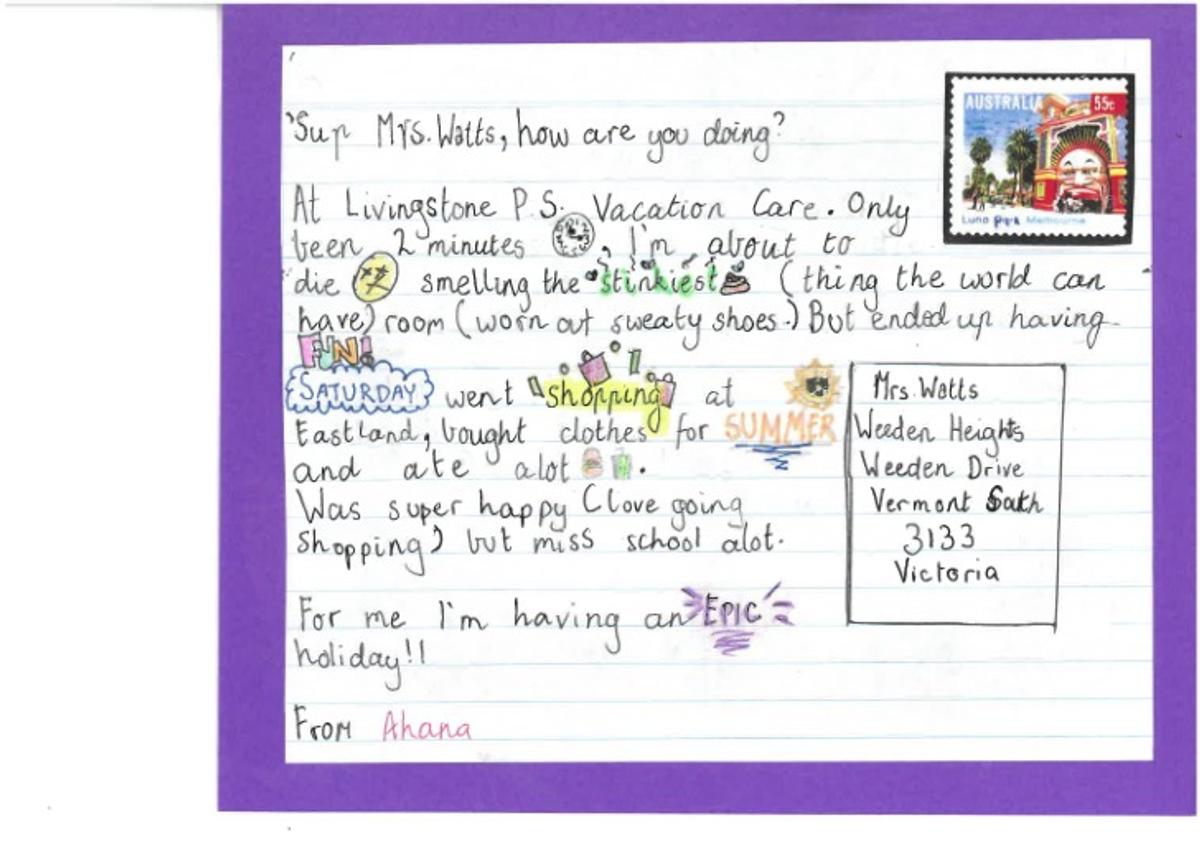 'Sup Mrs. Watts, how are you doing?
At Livingstone P.S. Vacation Care. Only
been 2 minutes , I'm about to
die smelling the stinkiest (thing the world can
have) room (worn out sweaty shoes.) But ended up having
FUN!
SATURDAY went shopping at
Eastland, bought clothes for SUMMER
and ate alot .
Was super happy (love going
shopping) but miss school alot.
For me I'm having an EPIC
holiday!!
From Ahana
AUSTRALIA 55c
Luna Park Melbourne
Mrs. Watts
Weeden Heights
Weeden Drive
Vermont South
3133
Victoria